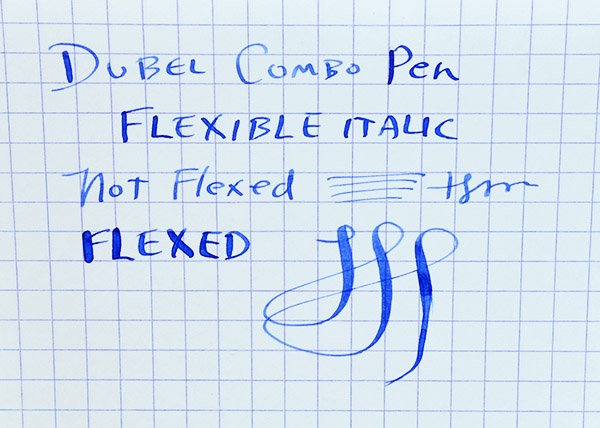 DUBEL COMBO Pen
FLEXIBLE ITALIC
Not Flexed
FLEXED